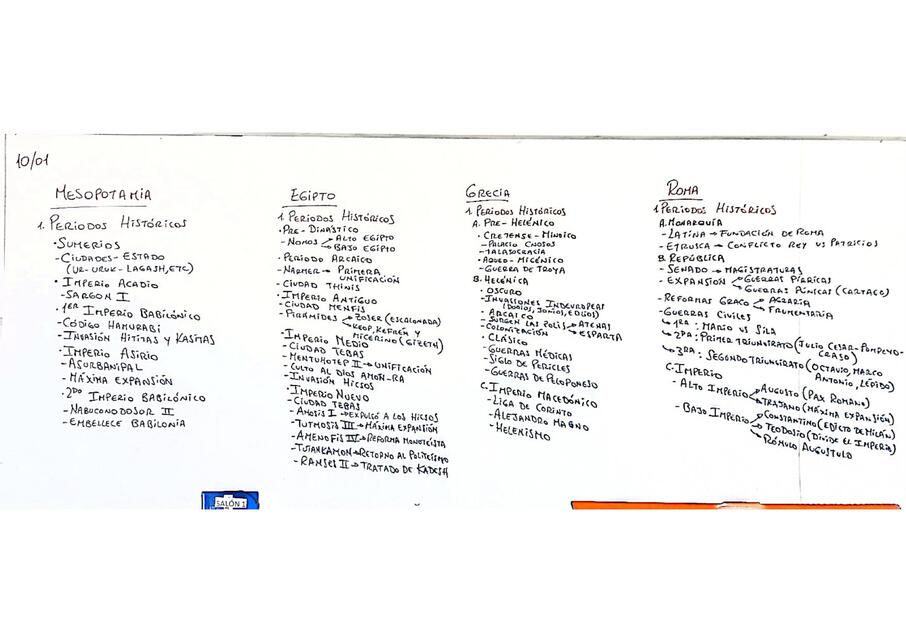 10/01
MESOPOTAMIA
1. PERIODOS HISTÓRICOS
• SUMERIOS
- CIUDADES - ESTADO
(UR-URUK-LAGASH, ETC)
• IMPERIO ACADIO
- SARGON I
• 1ER IMPERIO BABILÓNICO
- CÓDIGO HAMURABI
- INVASIÓN HITITAS Y KASITAS
• IMPERIO ASIRIO
- ASURBANIPAL
- MÁXIMA EXPANSIÓN
• 2DO IMPERIO BABILÓNICO
- NABUCONODOSOR II
- EMBELLECE BABILONIA
EGIPTO
1. PERIODOS HISTÓRICOS
• PRE-DINÁSTICO
- NOMOS → ALTO EGIPTO
→ BAJO EGIPTO
• PERIODO ARCAICO
- NARMER → PRIMERA
UNIFICACIÓN
- CIUDAD THINIS
• IMPERIO ANTIGUO
- CIUDAD MENFIS
- PIRÁMIDES → ZOSER (ESCALONADA)
→ KEOP, KEFRÉN Y
MICERINO (GIZETH)
• IMPERIO MEDIO
- CIUDAD TEBAS
- MENTUHOTEP II → UNIFICACIÓN
- CULTO AL DIOS AMÓN-RA
- INVASIÓN HICSOS
• IMPERIO NUEVO
- CIUDAD TEBAS
- AMOSIS I → EXPULGÓ A LOS HICSOS
- TUTMOSIS III → MÁXIMA EXPANSIÓN
- AMENOFIS IV → REFORMA MONOTEÍSTA
- TUTANKAMON → RETORNO AL POLITEÍSMO
- RAMSES II → TRATADO DE KADESH
GRECIA
1. PERIODOS HISTÓRICOS
A. PRE-HELÉNICO
• CRETENSE - MINOICO
- PALACIO CNOSOS
- TALASOCRACIA
• AQUEO - MICÉNICO
- GUERRA DE TROYA
B. HELÉNICA
• OSCURO
- INVASIONES INDEUROPEAS
(DORIOS, JONIOS, EOLIOS)
• ARCAICO
- SURGEN LAS POLIS → ATENAS
→ ESPARTA
- COLONIZACIÓN
• CLÁSICO
- GUERRAS MÉDICAS
- SIGLO DE PERICLES
- GUERRAS DE PELOPONESO
C. IMPERIO MACEDÓNICO
- LIGA DE CORINTO
- ALEJANDRO MAGNO
- HELENISMO
ROMA
1. PERIODOS HISTÓRICOS
A. MONARQUÍA
- LATINA → FUNDACIÓN DE ROMA
- ETRUSCA → CONFLICTO REY VS PATRICIOS
B. REPÚBLICA
- SENADO → MAGISTRATURAS
- EXPANSIÓN → GUERRAS PÍRRICAS
→ GUERRAS PÚNICAS (CARTAGO)
- REFORMAS GRACO → AGRARIA
→ FRUMENTARIA
- GUERRAS CIVILES
→ 1RA: MARIO VS SILA
→ 2DA: PRIMER TRIUNVIRATO (JULIO CESAR-POMPEYO-
CRASO)
→ 3RA: SEGUNDO TRIUNVIRATO (OCTAVIO, MARCO
ANTONIO, LÉPIDO)
C. IMPERIO
- ALTO IMPERIO → AUGUSTO (PAX ROMANO)
→ TRAJANO (MÁXIMA EXPANSIÓN)
- BAJO IMPERIO → CONSTANTINO (EDICTO DE MILÁN)
→ TEODOSIO (DIVIDE EL IMPERIO)
→ RÓMULO AUGUSTULO
SALÓN 1